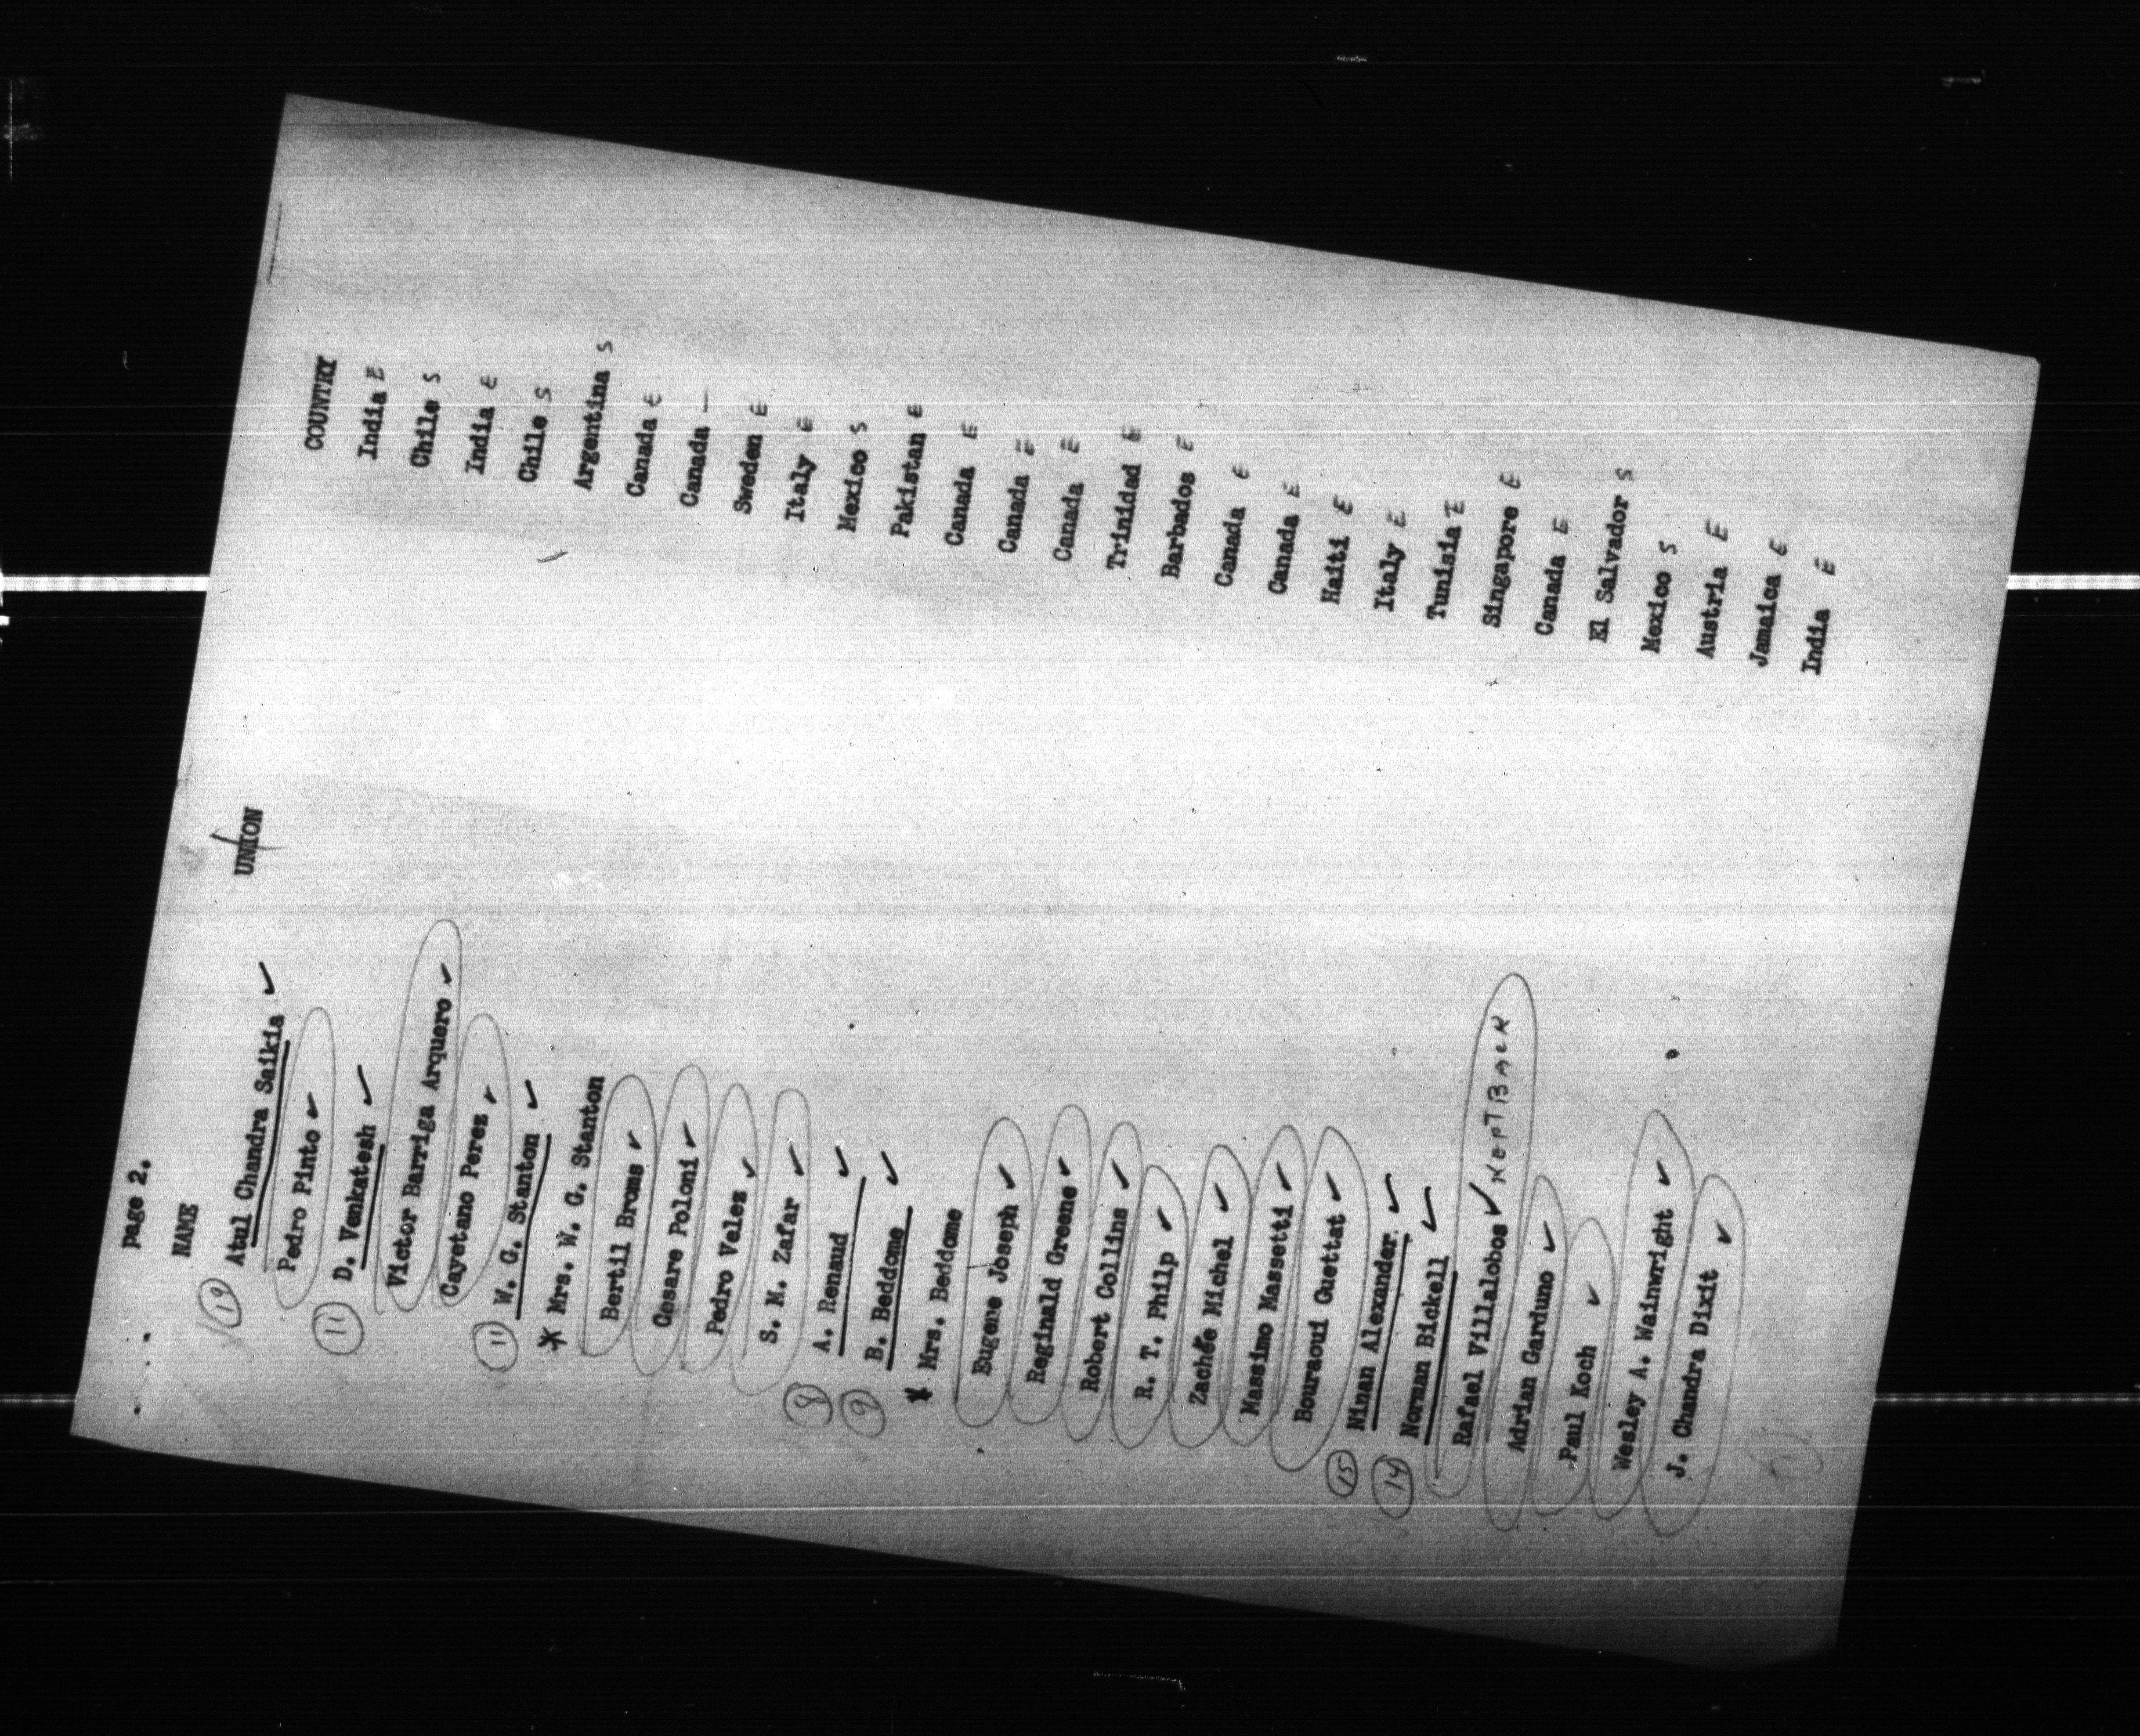 page 2.
NAME UNION COUNTRY
19 Atul Chandra Saikia ✓ India E
Pedro Pinto ✓ Chile S
11 D. Venkatesh ✓ India E
Victor Barriga Arquero ✓ Chile S
Cayetano Perez ✓ Argentina S
11 W. G. Stanton ✓ Canada E
* Mrs. W. G. Stanton Canada —
Bertill Broms ✓ Sweden E
Cesare Poloni ✓ Italy E
Pedro Velez ✓ Mexico S
S. M. Zafar ✓ Pakistan E
8 A. Renaud ✓ Canada E
9 B. Beddome ✓ Canada E
* Mrs. Beddome Canada E
Eugene Joseph ✓ Trinidad E
Reginald Greene ✓ Barbados E
Robert Collins ✓ Canada E
R. T. Philp ✓ Canada E
Zachée Michel ✓ Haiti E
Massimo Massetti ✓ Italy E
Bouraoui Guettat ✓ Tunisia E
15 Ninan Alexander ✓ Singapore E
14 Norman Bickell ✓ Canada E
Rafael Villalobos ✓ El Salvador S
Adrian Garduno ✓ Mexico S
Paul Koch ✓ Austria E
Wesley A. Wainwright ✓ Jamaica E
J. Chandra Dixit ✓ India E